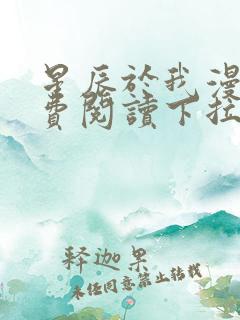 星辰於我漫
費閱讀下拉
释迦果
未经同意禁止转载